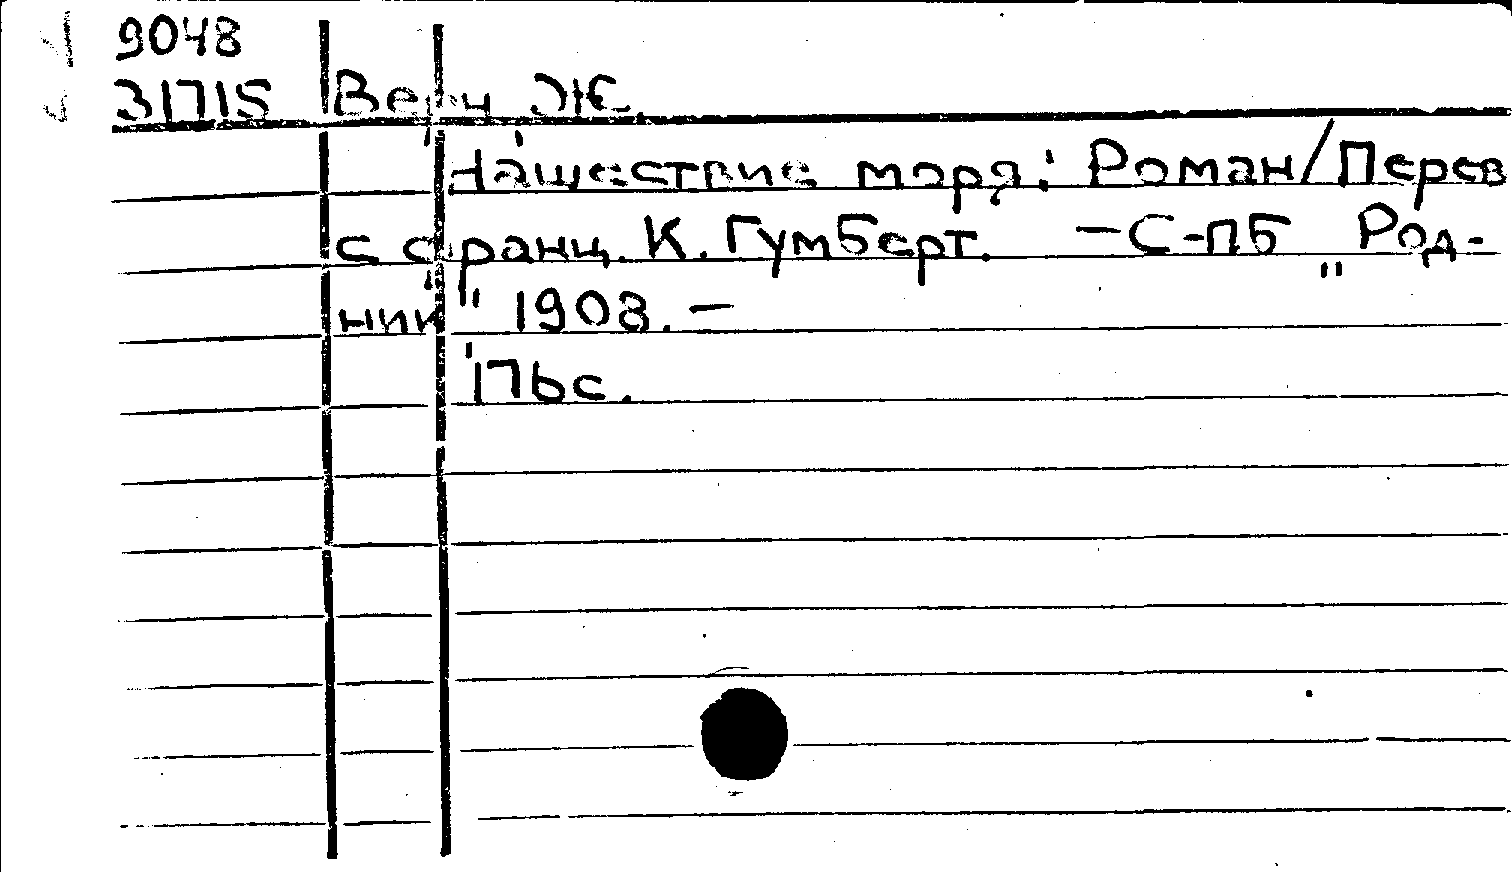 9048
31715 Верн Ж.
Нашествие моря: Роман/Перев
с франц. К. Гумберт. — С-ПБ „Род-
ник" 1908. —
176с.